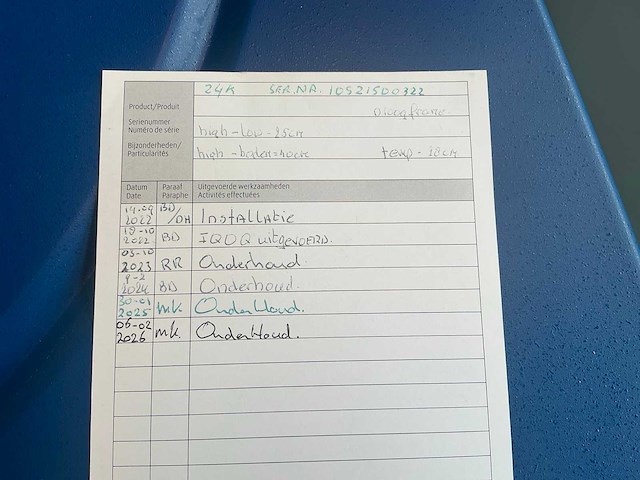 24K SER.NR. 10521500322
Product/Produit
Serienummer
Numéro de série
high-low-25cm
Bijzonderheden/
Particularités
high-balen=40cm temp-38cm
Datum Paraaf Uitgevoerde werkzaamheden
Date Paraphe Activités effectuées
14-09 BD
2022 /DH Installatie
18-10
2022 BD IQOQ uitgevoerd.
03-10
2023 RR Onderhoud
9-2
2024 BD Onderhoud.
30-01
2025 MK. Onderhoud.
06-02
2026 MK. Onderhoud.